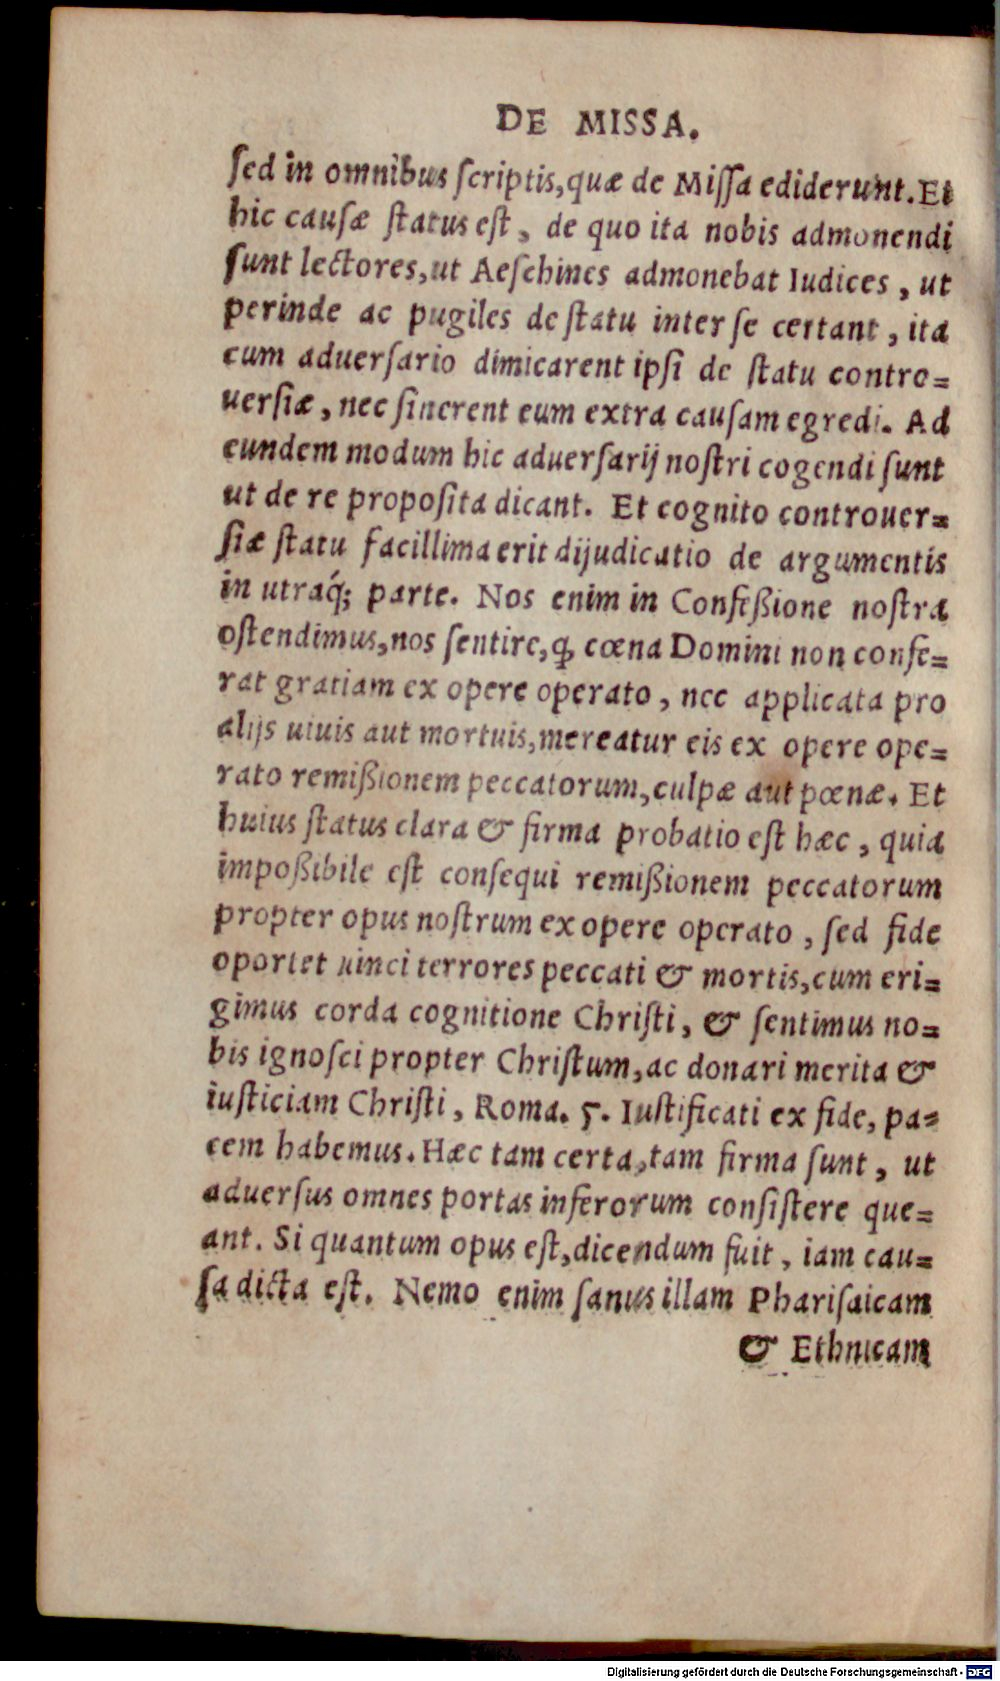 DE MISSA.
ſed in omnibus ſcriptis, quæ de Miſſa ediderunt. Et
hic cauſæ ſtatus eſt, de quo ita nobis admonendi
ſunt lectores, ut Aeſchines admonebat Iudices, ut
perinde ac pugiles de ſtatu inter ſe certant, ita
cum aduerſario dimicarent ipſi de ſtatu contro=
uerſiæ, nec ſinerent eum extra cauſam egredi. Ad
eundem modum hic aduerſarij noſtri cogendi ſunt
ut de re propoſita dicant. Et cognito controuer=
ſiæ ſtatu facillima erit dijudicatio de argumentis
in utraq́; parte. Nos enim in Confeßione noſtra
oſtendimus, nos ſentire, ꝙ cœna Domini non confe=
rat gratiam ex opere operato, nec applicata pro
alijs uiuis aut mortuis, mereatur eis ex opere ope=
rato remißionem peccatorum, culpæ aut pœnæ. Et
huius ſtatus clara & firma probatio eſt hæc, quia
impoßibile eſt conſequi remißionem peccatorum
propter opus noſtrum ex opere operato, ſed fide
oportet uinci terrores peccati & mortis, cum eri=
gimus corda cognitione Chriſti, & ſentimus no=
bis ignoſci propter Chriſtum, ac donari merita &
iuſticiam Chriſti, Roma. 5. Iuſtificati ex fide, pa=
cem habemus. Hæc tam certa, tam firma ſunt, ut
aduerſus omnes portas inferorum conſiſtere que=
ant. Si quantum opus eſt, dicendum fuit, iam cau=
ſa dicta eſt. Nemo enim ſanus illam Phariſaicam
& Ethnicam
Digitalisierung gefördert durch die Deutsche Forschungsgemeinschaft - DFG